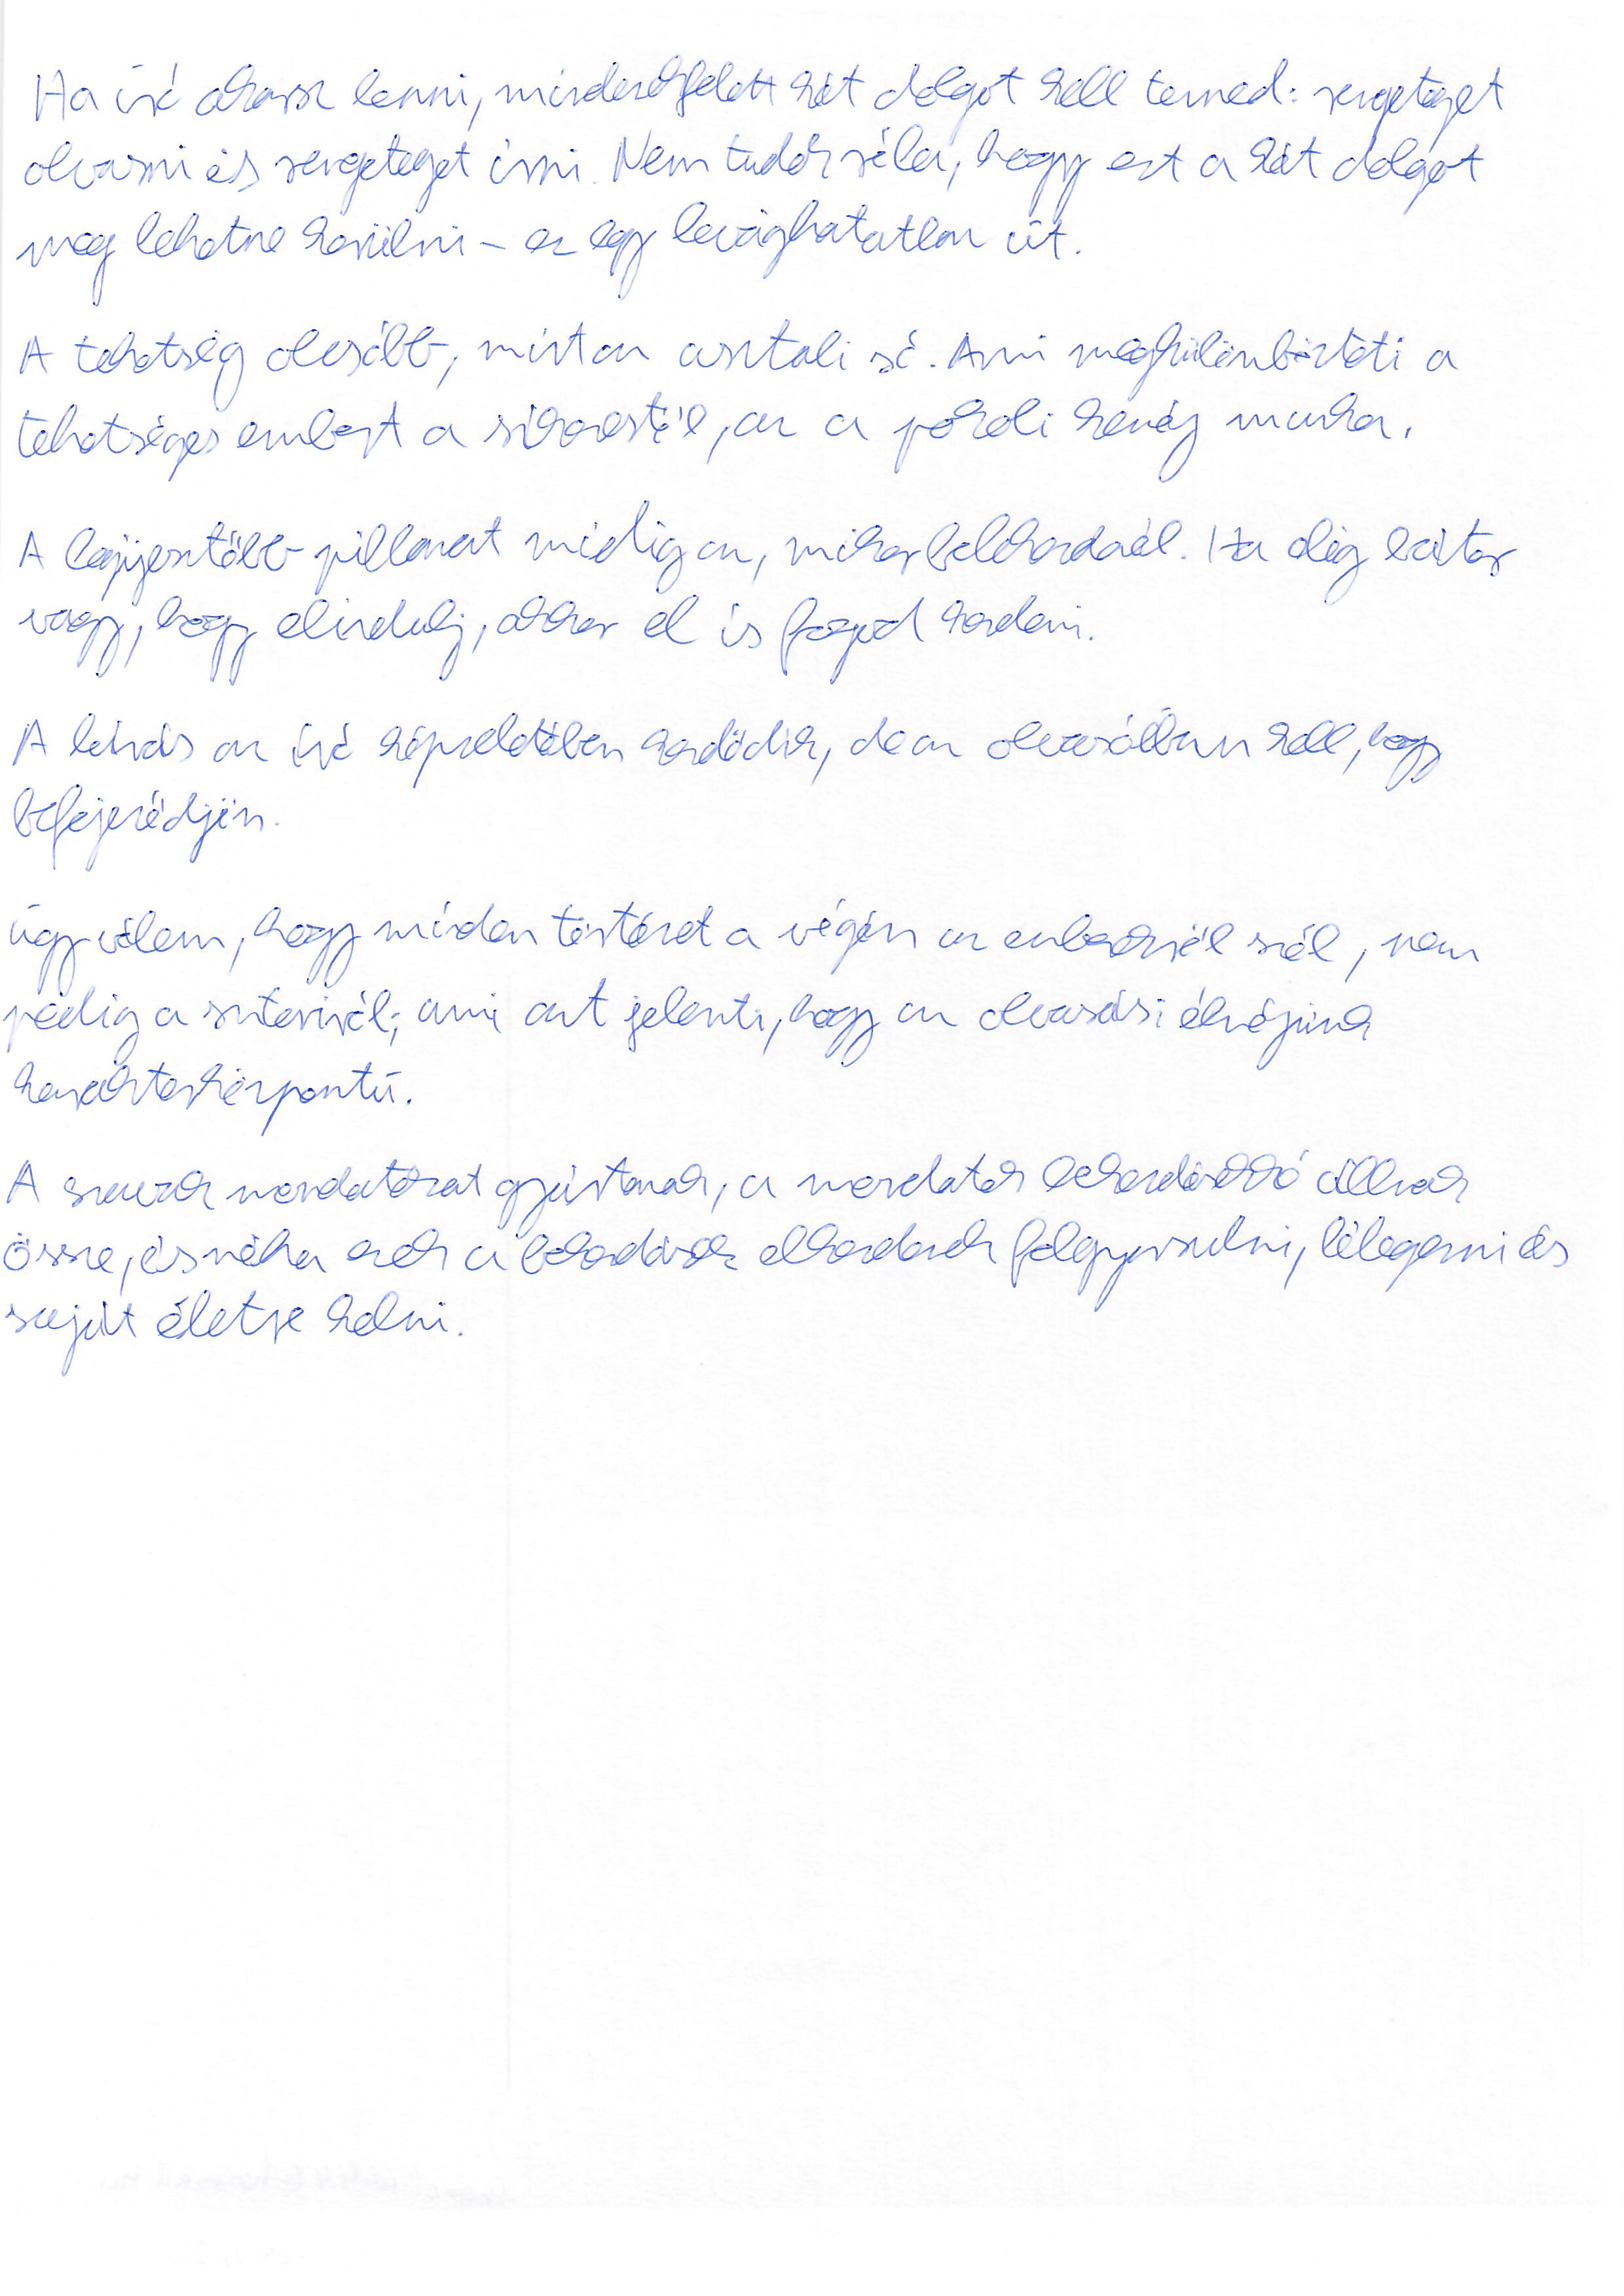 Ha író akarsz lenni, mindenekfelett két dolgot kell tenned: rengeteget
olvasni és rengeteget írni. Nem tudok róla, hogy ezt a két dolgot
meg lehetne kerülni – ez egy levághatatlan út.
A tehetség olcsóbb, mint az asztali só. Ami megkülönbözteti a
tehetséges embert a sikerestől, az a pokoli kemény munka.
A legijesztőbb pillanat mindig az, mikor belekezdenél. Ha elég bátor
vagy, hogy elindulj, akkor el is fogod kezdeni.
A leírás az író képzeletében kezdődik, de az olvasóéban kell, hogy
befejeződjön.
Úgy vélem, hogy minden történet a végén az emberekről szól, nem
pedig a sztoriról; ami azt jelenti, hogy az olvasási élményünk
karakterközpontú.
A szavak mondatokat gyártanak, a mondatok bekezdésekké állnak
össze, és néha ezek a bekezdések elkezdenek felgyorsulni, lélegezni és
saját életre kelni.